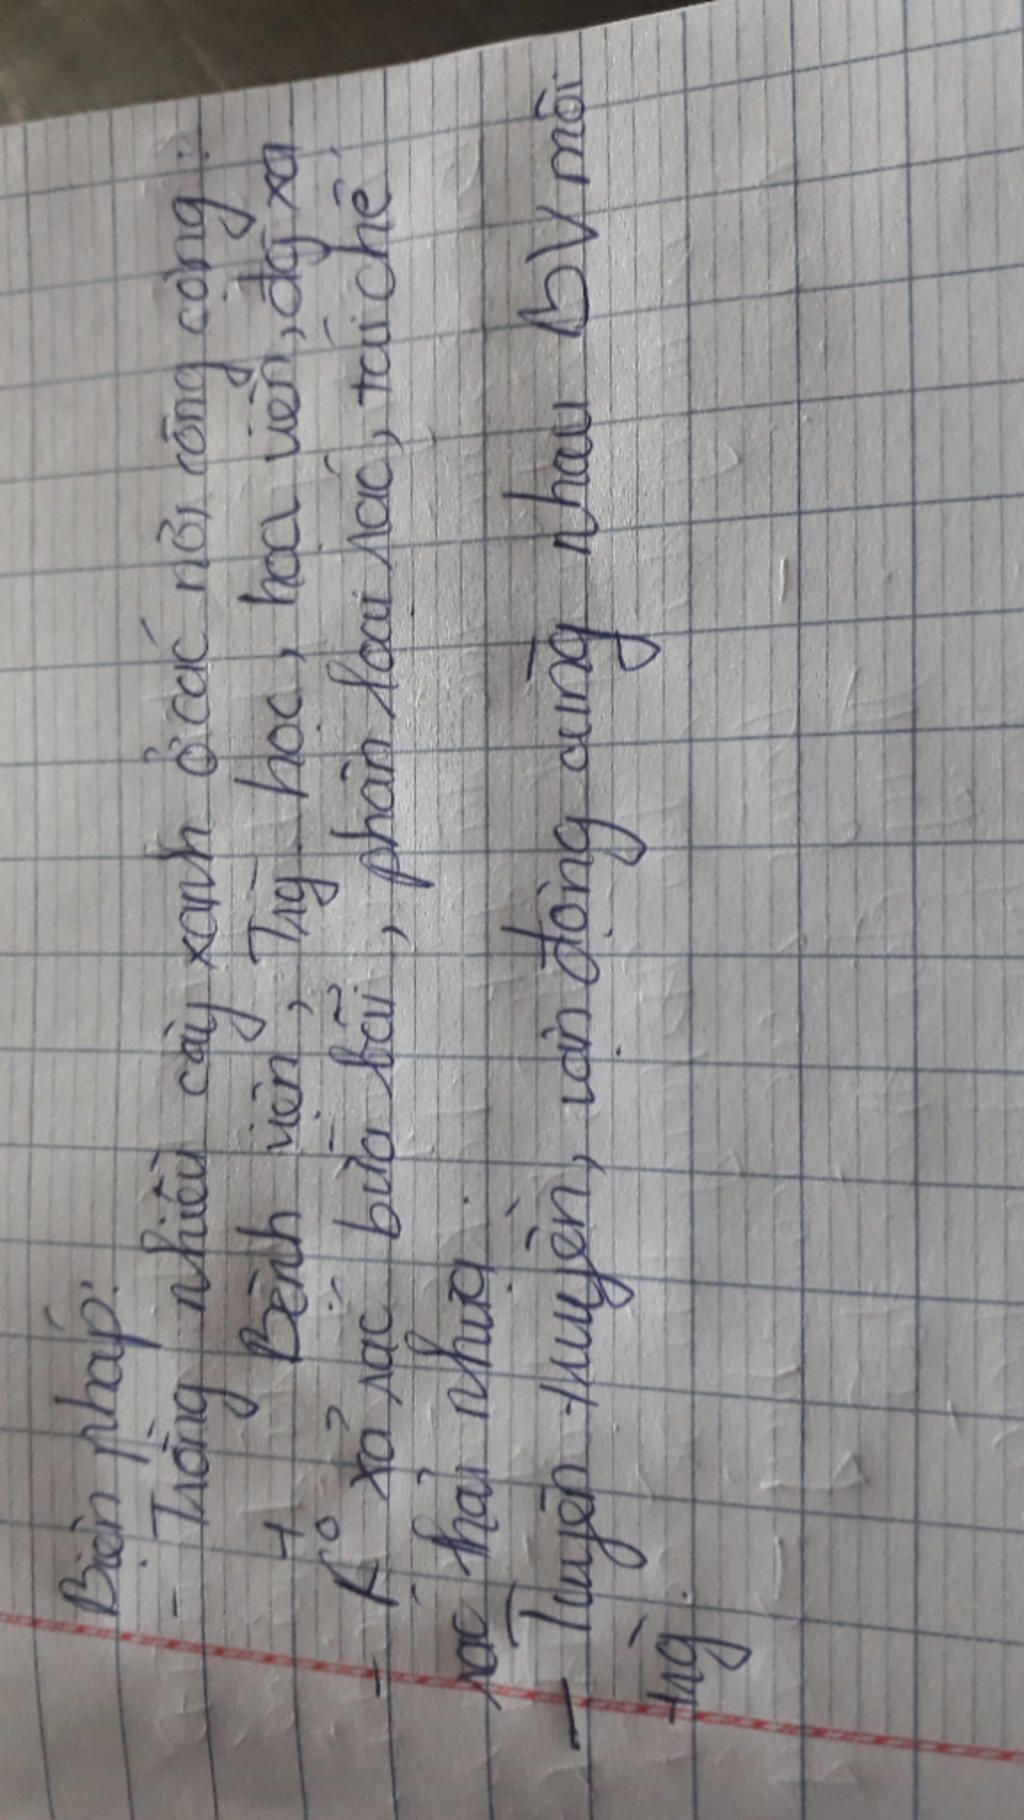 Biện pháp:
- Trồng nhiều cây xanh ở các nơi công cộng:
+ Bệnh viện, Trg học, hoa viên, đg xa
- K° xả rác bừa bãi, phân loại rác, tái chế
rác thải nhựa.
- Tuyên truyền, vận động cùng nhau BV môi
trg.